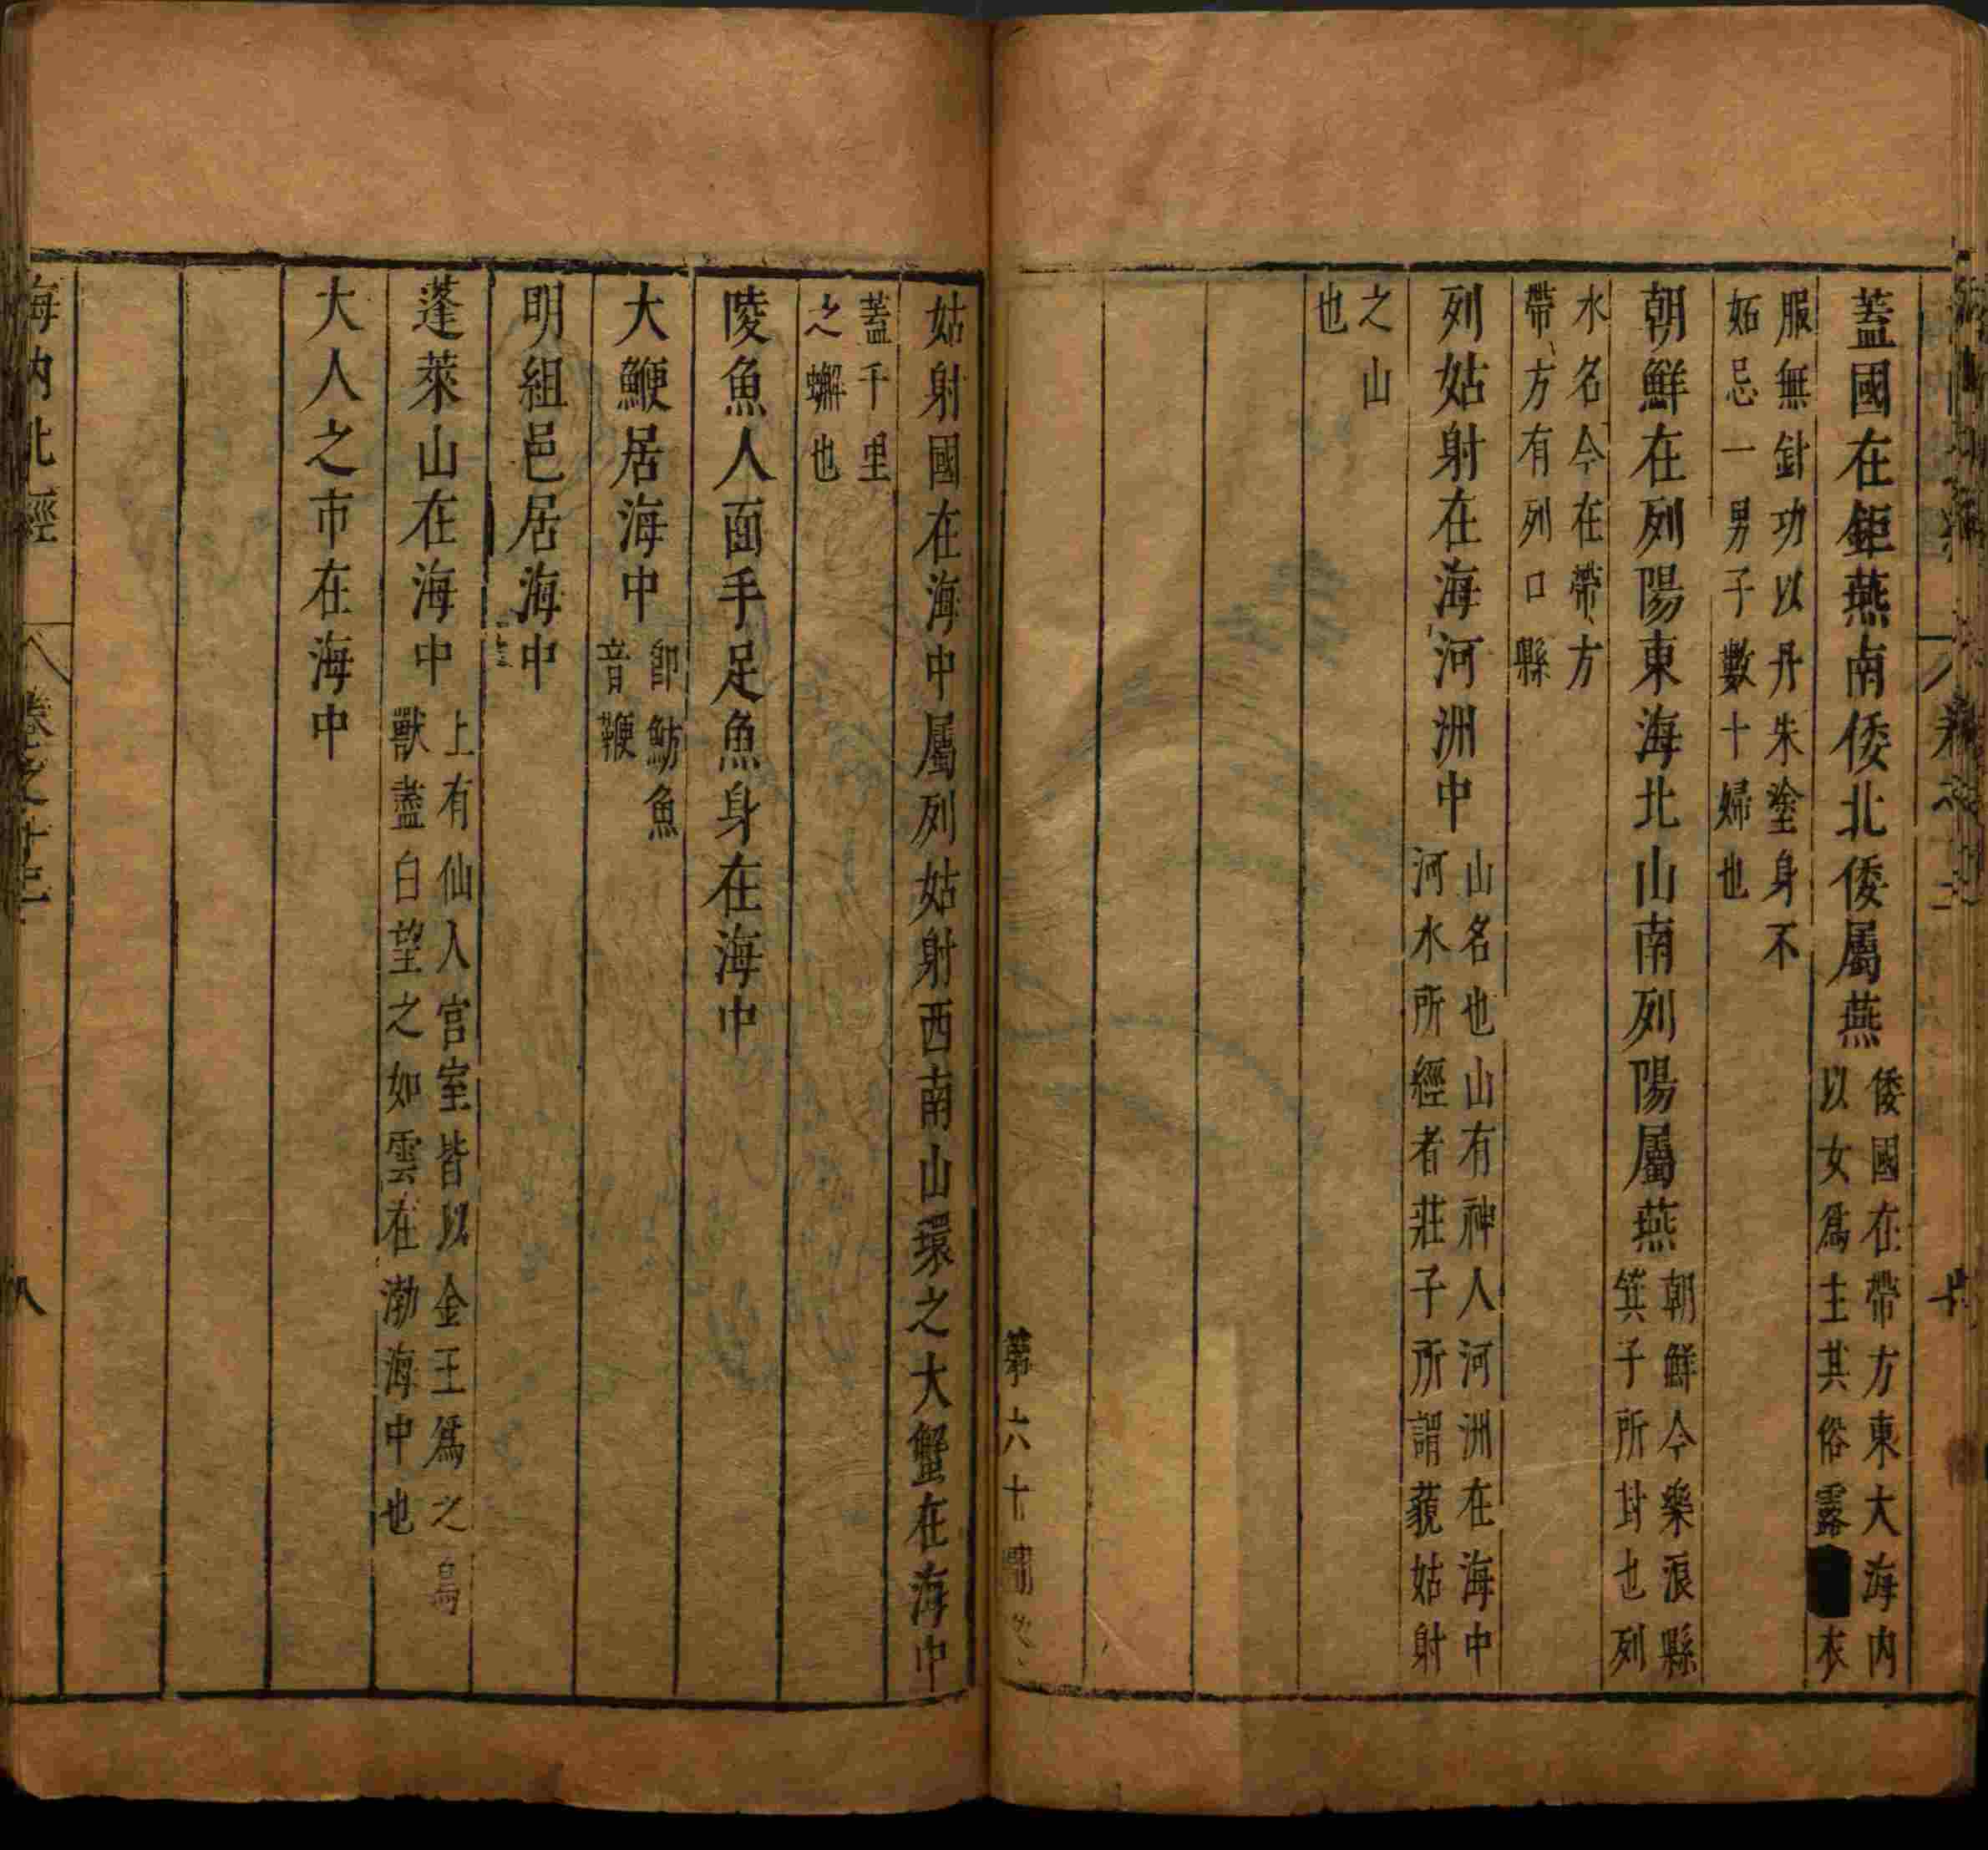 蓋國在鉅燕南倭北倭屬燕
倭國在帶方東大海内
以女爲主其俗露衣
服無針功以丹朱塗身不
妬忌一男子數十婦也
朝鮮在列陽東海北山南列陽屬燕
朝鮮今樂浪縣
箕子所封也列
水名今在帶方
帶方有列口縣
列姑射在海河洲中
山名也山有神人河洲在海中
河水所經者莊子所謂藐姑射
之山
也
第六十
姑射國在海中屬列姑射西南山環之大蟹在海中
蓋千里
之蠏也
陵魚人面手足魚身在海中
大鯾居海中
卽魴魚
音鞭
明組邑居海中
蓬萊山在海中
上有仙人宫室皆以金王爲之鳥
獸盡白望之如雲在渤海中也
大人之市在海中
海内北經
卷之十二
八